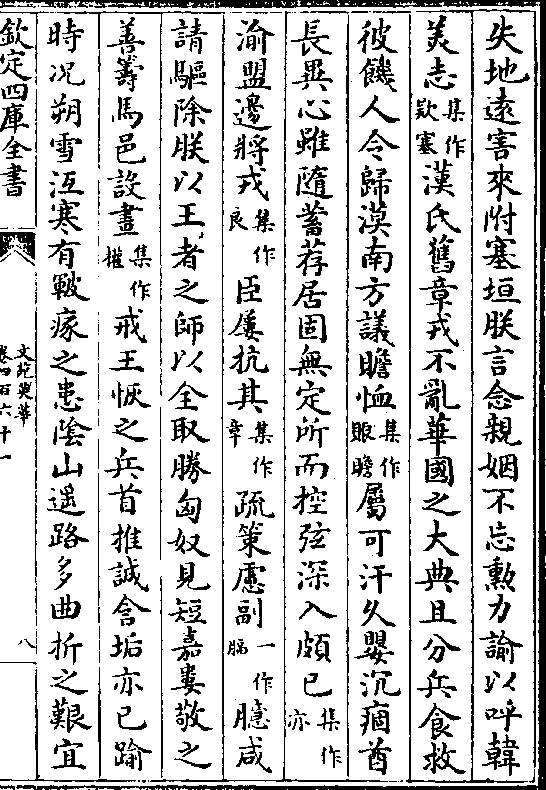 失地逺害來附塞垣朕言念親姻不忘勲力諭以呼韓
美志集作欵塞漢氏舊章戎不亂華國之大典且分兵食救
彼饑人令歸漠南方議贍恤集作賑贍屬可汗久嬰沉痼酋
長異心雖隨蓄荐居固無定所而控弦深入頗已集作亦
渝盟邊將戎集作良臣屢抗其集作章疏策慮副一作腷臆咸
請驅除朕以王者之師以全取勝匈奴見短嘉婁敬之
善籌馬邑設畫集作權戒王恢之兵首推誠含垢亦已踰
時况朔雪沍寒有皸瘃之患陰山遥路多曲折之艱宜
欽定四庫全書
文苑英華
卷四百六十一
八